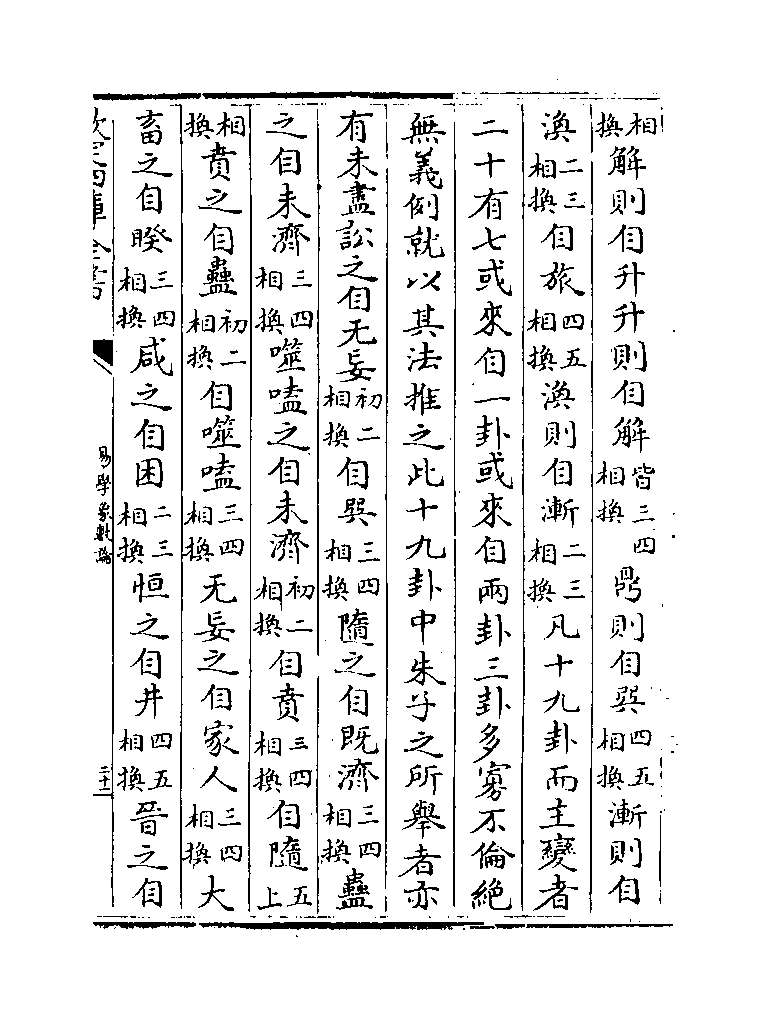 相換解則自升升則自解皆三四相換鼎則自巽四五相換漸則自
渙二三相換自旅四五相換渙則自漸二三相換凡十九卦而主變者
二十有七或來自一卦或來自兩卦三卦多寡不倫絶
無義例就以其法推之此十九卦中朱子之所舉者亦
有未盡訟之自无妄初二相換自巽三四相換隨之自既濟三四相換蠱
之自未濟三四相換噬嗑之自未濟初二相換自賁三四相換自隨五上
相換賁之自蠱初二相換自噬嗑三四相換无妄之自家人三四相換大
畜之自睽三四相換咸之自困二三相換恒之自井四五相換晉之自
欽定四庫全書
易學象數論